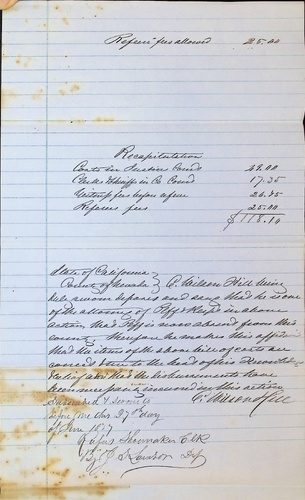 Referees fees allowed 25.00
Recapitulation
Costs in Justices Court 49.00
Clerks & Sheriffs in Co Court 17.35
fees before referee
Referees fees 25.00
$118.10
State of California
County of Nevada C. Wilson Hill being
duly sworn deposes and says that he is one
of the attorneys of in above
action that Plff is now absent from this
county. Therefore he makes this affidavit
that the items of the above bill of costs are
correct to the best of his knowledge
belief and that the disbursements have
been incurred in this action
Subscribed & sworn to C. Wilson Hill
before me this 27th day
of June
Rufus Shoemaker Clk
By Dep